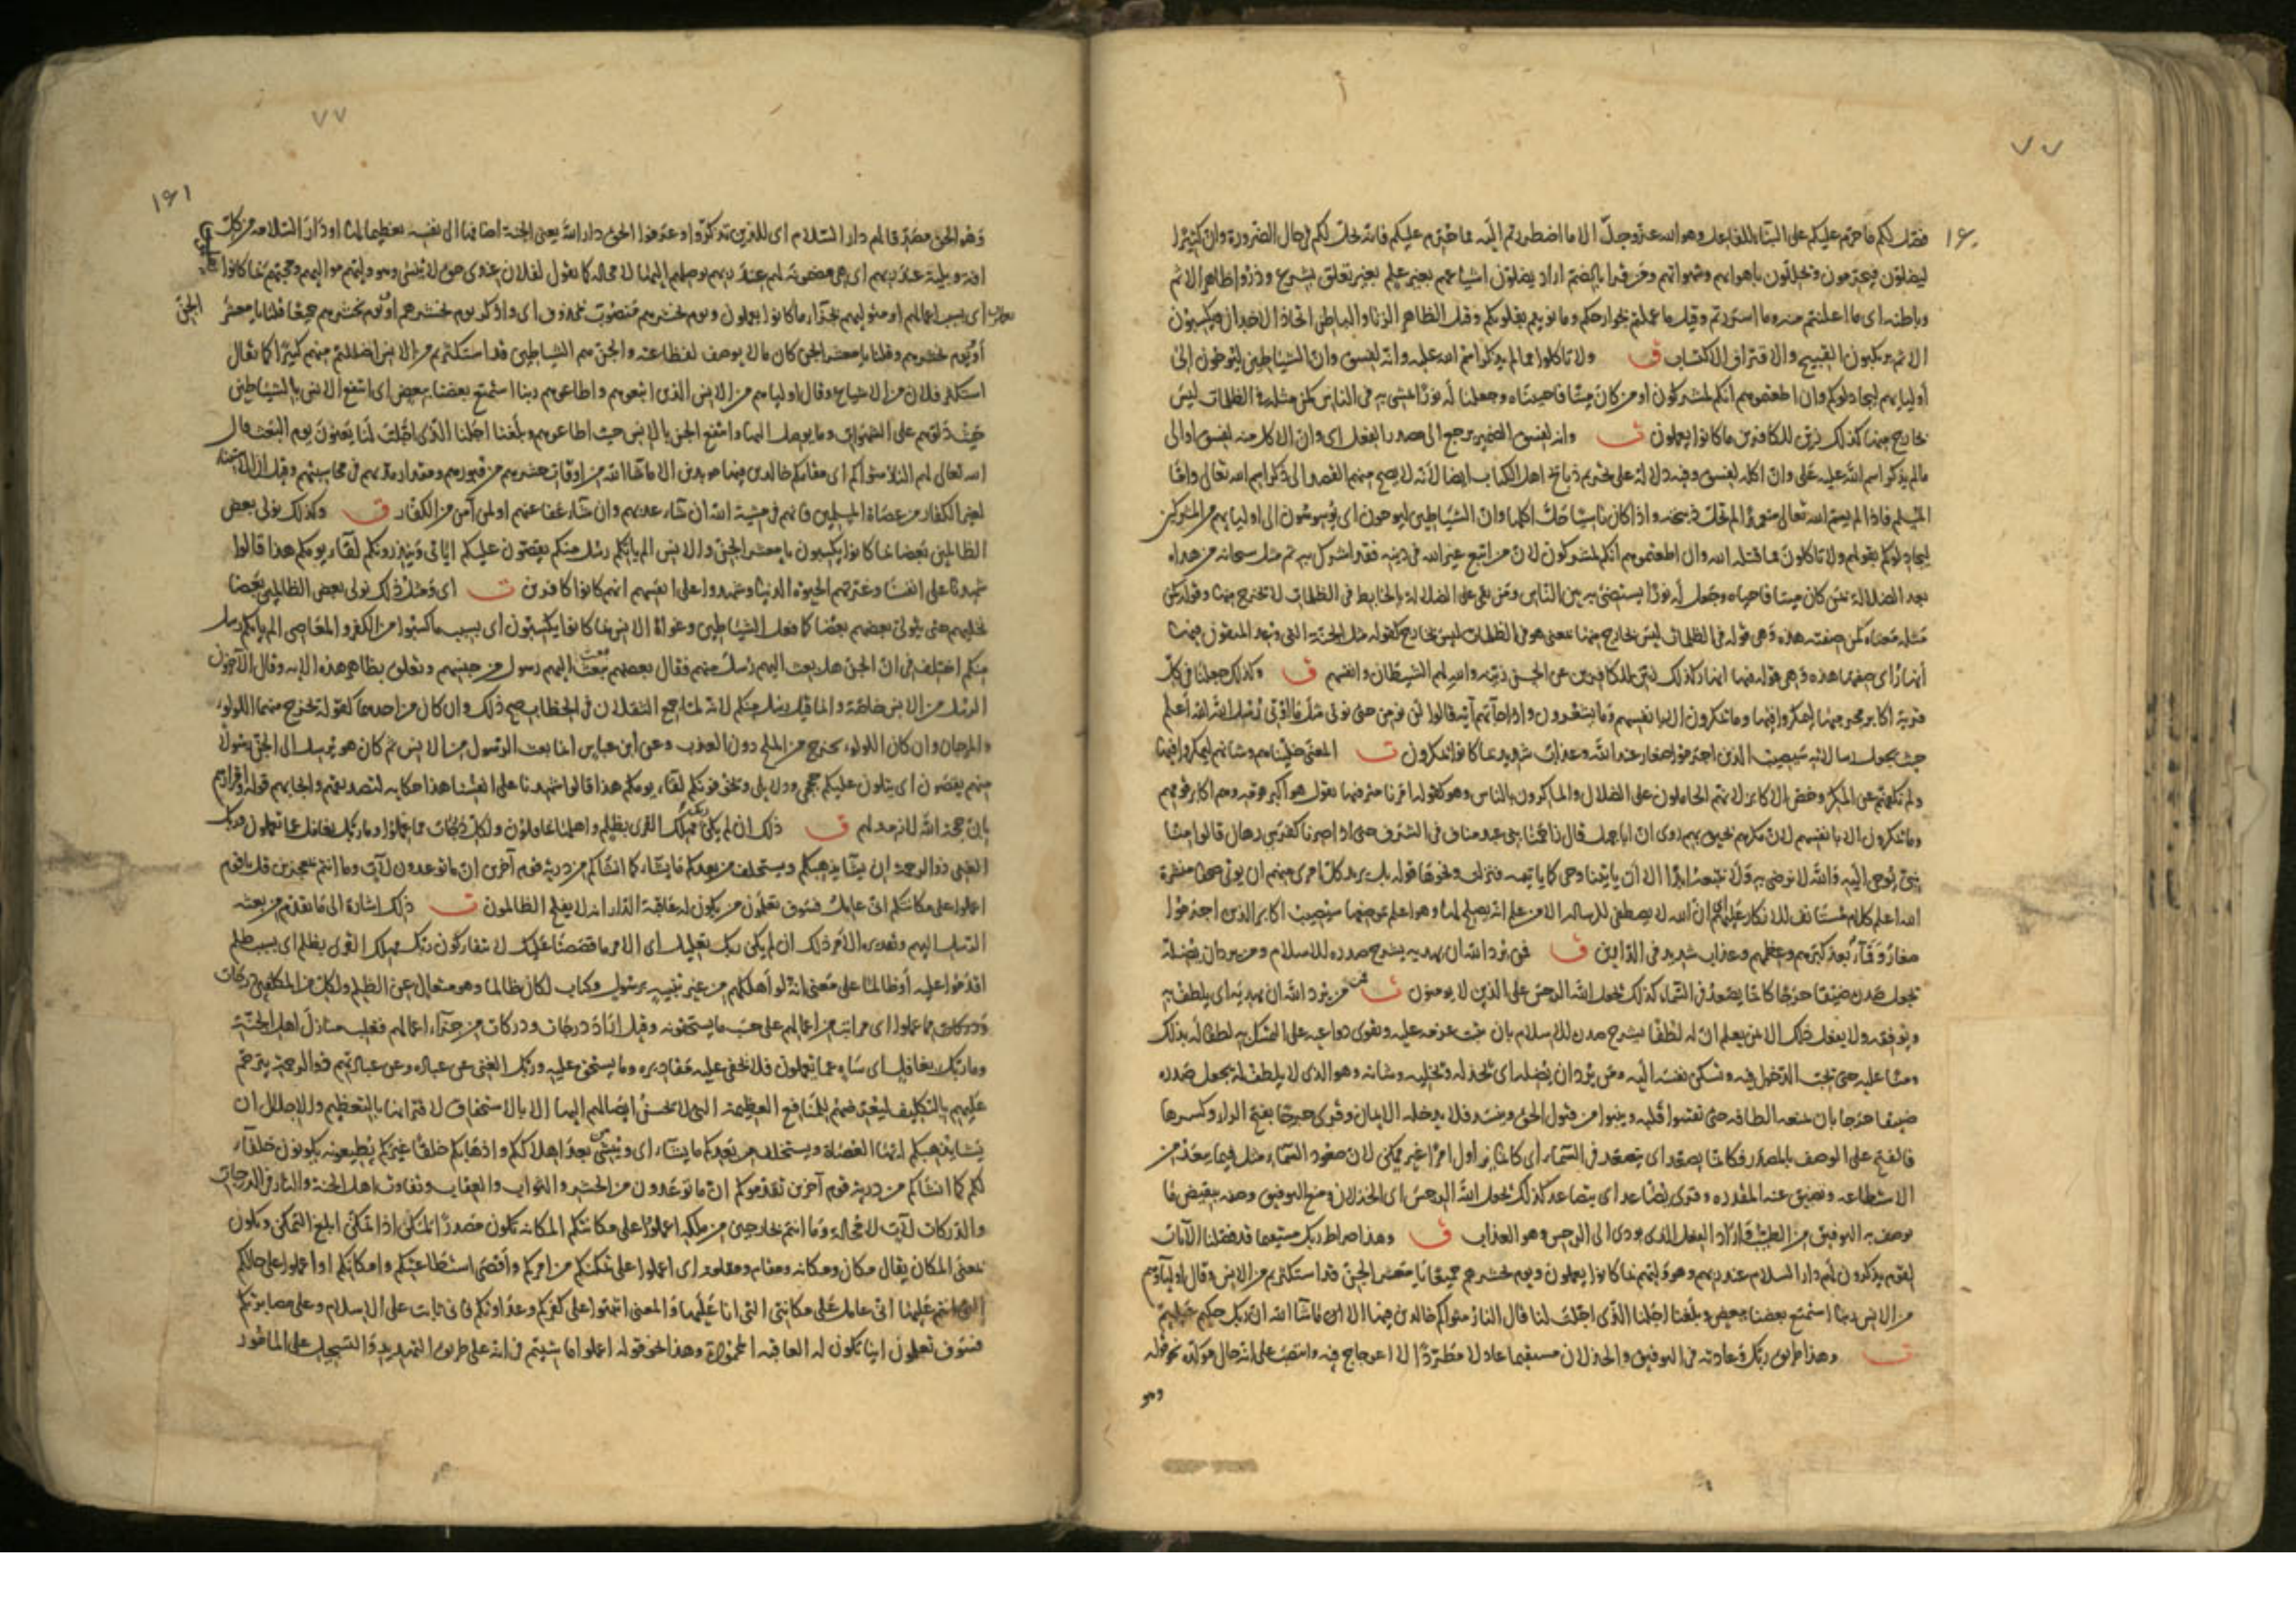 ٧٧
١٦٠
فصّل لكم ما حرّم عليكم على البناء للفاعل وهو الله عز وجل الا ما اضطررتم اليه مما حرّم عليكم فانه حلال لكم في حال الضرورة وان كثيرا
ليضلون فيحرمون ويحللون باهوائهم وشهواتهم وقرئ بالضم اراد يضلون اشياعهم بغير علم بغير تعلق بشرع وذروا ظاهر الاثم
وباطنه اي ما اعلنتم منه وما اسررتم وقيل ما عملتم بجوارحكم وما نويتم بقلوبكم وقيل الظاهر الزنا والباطن اتخاذ الاخدان سيكسبون
الاثم يرتكبون القبيح والاقتراف الاكتساب ق ولا تاكلوا مما لم يذكر اسم الله عليه وانه لفسق وان الشياطين ليوحون الى
اوليائهم ليجادلوكم وان اطعتموهم انكم لمشركون او من كان ميتا فاحييناه وجعلنا له نورا يمشي به في الناس كمن مثله في الظلمات ليس
بخارج منها كذلك زين للكافرين ما كانوا يعملون ت وانه لفسق الضمير يرجع الى مصدر الفعل اي وان الاكل منه لفسق او الى
ما لم يذكر اسم الله عليه على وان اكله لفسق وفيه دلالة على تحريم ذبائح اهل الكتاب ايضا لانه لا يصح منهم القصد الى ذكر اسم الله تعالى واما
المسلم فاذا لم يسم الله تعالى متعمدا لم تحل ذبيحته واذا كان ناسيا حل اكلها وان الشياطين ليوحون اي يوسوسون الى اوليائهم من المشركين
ليجادلوكم بقولهم ولا تاكلون مما قتله الله وان اطعتموهم انكم لمشركون لان من اتبع غير الله في دينه فقد اشرك به ثم مثل سبحانه من هداه
بعد الضلالة بمن كان ميتا فاحياه وجعل له نورا يستضيء به بين الناس ومن بقي على الضلالة بالخابط في الظلمات لا يخرج منها وقوله كمن
مثله معناه كمن صفته هذه وهي قوله في الظلمات ليس بخارج منها بمعنى هو في الظلمات ليس بخارج كقوله مثل الجنة التي وعد المتقون فيها
انهار اي صفتها هذه وهي قوله فيها انهار كذلك زين للكافرين عن الحسن زينه والله لهم الشيطان وانفسهم ق وكذلك جعلنا في كل
قرية اكابر مجرميها ليمكروا فيها وما يمكرون الا بانفسهم وما يشعرون واذا جاءتهم آية قالوا لن نؤمن حتى نؤتى مثل ما اوتي رسل الله الله اعلم
حيث يجعل رسالاته سيصيب الذين اجرموا صغار عند الله وعذاب شديد بما كانوا يمكرون ت المعنى خليناهم وشانهم ليمكروا فيها
ولم نكفهم عن المكر وخص الاكابر لانهم الحاملون على الضلال والماكرون بالناس وهو كقوله امرنا مترفيها
وما يمكرون الا بانفسهم لان مكرهم يحيق بهم روي ان ابا جهل قال زاحمنا بني عبد مناف في الشرف حتى اذا صرنا كفرسي رهان قالوا منا
نبي يوحى اليه والله لا نرضى به ولا نتبعه ابدا الا ان ياتينا وحي كما ياتيه فنزلت ونحوها قوله بل يريد كل امرئ منهم ان يؤتى صحفا منشرة
الله اعلم كلام مستانف للانكار عليهم ان الله لا يصطفي للرسالة الا من علم انه يصلح لها وهو اعلم بموضعها سيصيب اكابر الذين اجرموا
صغار وقماءة بعد كبرهم وعظمهم وعذاب شديد في الدارين ق فمن يرد الله ان يهديه يشرح صدره للاسلام ومن يرد ان يضله
يجعل صدره ضيقا حرجا كانما يصعد في السماء كذلك يجعل الله الرجس على الذين لا يؤمنون ت فمن يرد الله ان يهديه اي يلطف به
ويوفقه ولا يفعل ذلك الا بمن يعلم ان له لطفا يشرح صدره للاسلام بان يثبت عزمه عليه ويقوي دواعيه على التمسك به لطفا له بذلك
ومنا عليه حتى يحب الدخول فيه وتسكن نفسه اليه ومن يرد ان يضله اي يخذله ويخليه وشانه وهو الذي لا يلطف له يجعل صدره
ضيقا حرجا بان يمنعه الطافه حتى تقسو قلبه وينبو من قبول الحق وينسد فلا يدخله الايمان وقرئ حرجا بفتح الراء وكسرها
فالفتح على الوصف بالمصدر كانما يصعد اي يتصعد في السماء اي كانما يزاول امرا غير ممكن لان صعود السماء مثل فيما يبعد من
الاستطاعة وتضيق عنه المقدرة وقرئ يصاعد اي يتصاعد كذلك يجعل الله الرجس اي الخذلان ومنع التوفيق وصفه بنقيض ما
يوصف به التوفيق من الطيب او اراد الفعل الذي يؤدي الى الرجس وهو العذاب ق وهذا صراط ربك مستقيما قد فصلنا الآيات
لقوم يذكرون لهم دار السلام عند ربهم وهو وليهم بما كانوا يعملون ويوم نحشرهم جميعا يا معشر الجن قد استكثرتم من الانس وقال اولياؤهم
من الانس ربنا استمتع بعضنا ببعض وبلغنا اجلنا الذي اجلت لنا قال النار مثواكم خالدين فيها الا ما شاء الله ان ربك حكيم عليم
ت وهذا طريق ربك وعادته في التوفيق والخذلان مستقيما عادلا مطردا لا اعوجاج فيه وانتصب على انه حال مؤكدة نحو قوله
وهو
٧٧
١٦١
وهو الحق مصدقا لهم دار السلام اي للذين تذكروا وعرفوا الحق دار الله يعني الجنة اضافها الى نفسه تعظيما لها او دار السلامة من كل
آفة وبلية عند ربهم اي هي مضمونة لهم عند ربهم يوصلهم اليها لا محالة كما تقول لفلان عندي حق لا ينسى وهو وليهم مواليهم ومحبهم بما كانوا
يعملون اي بسبب اعمالهم او متوليهم بجزاء ما كانوا يعملون ويوم نحشرهم منصوب بمحذوف اي واذكر يوم نحشرهم او يوم نحشرهم جميعا قلنا يا معشر الجن
او يوم نحشرهم وقلنا يا معشر الجن كان ما لا يوصف لفظاعته والجن هم الشياطين قد استكثرتم من الانس اضللتم منهم كثيرا كما يقال
استكثر فلان من الاشياع وقال اولياؤهم من الانس الذين اتبعوهم واطاعوهم ربنا استمتع بعضنا ببعض اي انتفع الانس بالشياطين
حيث دلوهم على الشهوات وما يوصل اليها وانتفع الجن بالانس حيث اطاعوهم وبلغنا اجلنا الذي اجلت لنا يعنون يوم البعث قال
الله تعالى لهم النار مثواكم اي مقامكم خالدين فيها مؤبدين الا ما شاء الله من اوقات حشرهم من قبورهم ومقدار مدتهم في محاسبتهم وقيل ان الاستثناء
لغير الكفار من عصاة المسلمين فانهم في مشية الله ان شاء عذبهم وان شاء عفا عنهم او لمن آمن من الكفار ق وكذلك نولي بعض
الظالمين بعضا بما كانوا يكسبون يا معشر الجن والانس الم ياتكم رسل منكم يقصون عليكم آياتي وينذرونكم لقاء يومكم هذا قالوا
شهدنا على انفسنا وغرتهم الحيوة الدنيا وشهدوا على انفسهم انهم كانوا كافرين ت اي ومثل ذلك نولي بعض الظالمين بعضا
نخليهم حتى يتولى بعضهم بعضا كما فعل الشياطين وغواة الانس بما كانوا يكسبون اي بسبب ما كسبوا من الكفر والمعاصي الم ياتكم رسل
منكم اختلف في ان الجن هل بعث اليهم رسل منهم فقال بعضهم بعث اليهم رسول من جنسهم وتعلق بظاهر هذه الآية وقال الآخرون
الرسل من الانس خاصة وانما قيل رسل منكم لانه لما جمع الثقلان في الخطاب صح ذلك وان كان من احدهما كقوله يخرج منهما اللؤلؤ
والمرجان وان كان اللؤلؤ يخرج من الملح دون العذب وعن ابن عباس انما بعث الرسول من الانس ثم كان هو يرسل الى الجن رسولا
منهم يقصون اي يتلون عليكم حججي ودلايلي ويخوفونكم لقاء يومكم هذا قالوا شهدنا على انفسنا هذا حكاية لتصديقهم وايجابهم قوله واقرارهم
بان حجة الله لازمة لهم ق ذلك ان لم يكن ربك مهلك القرى بظلم واهلها غافلون ولكل درجات مما عملوا وما ربك بغافل عما تعملون وربك
الغني ذو الرحمة ان يشا يذهبكم ويستخلف من بعدكم ما يشاء كما انشاكم من ذرية قوم آخرين ان ما توعدون لآت وما انتم بمعجزين قل يا قوم
اعملوا على مكانتكم اني عامل فسوف تعلمون من يكون له عاقبة الدار انه لا يفلح الظالمون ت ذلك اشارة الى ما تقدم من بعثة
الرسل اليهم وتقديره الامر ذلك ان لم يكن ربك تعليل اي الامر ما قصصنا عليك لانتفاء كون ربك مهلك القرى بظلم اي بسبب ظلم
اقدموا عليه او ظالما على معنى انه لو اهلكهم من غير تنبيه برسول وكتاب لكان ظالما وهو متعال عن الظلم ولكل من المكلفين درجات
ودركات مما عملوا اي مراتب من اعمالهم على حسب ما يستحقونه وقيل اراد درجات ودركات من جزاء اعمالهم فغلب منازل اهل الجنة
وما ربك بغافل اي ساه عما يعملون فلا يخفى عليه مقاديره وما يستحق عليه وربك الغني عن عباده وعن عبادتهم ذو الرحمة يترحم
عليهم بالتكليف ليعرضهم للمنافع العظيمة التي لا يحسن ايصالهم اليها الا بالاستحقاق لاقترانها بالتعظيم والاجلال ان
يشا يذهبكم ايها العصاة ويستخلف من بعدكم ما يشاء اي وينشئ بعد اهلاككم واذهابكم خلقا غيركم يطيعونه يكونون خلفاء
لكم كما انشاكم من ذرية قوم آخرين تقدموكم ان ما توعدون من الحشر والثواب والعقاب وتفاوت اهل الجنة والنار في الدرجات
والدركات لآت لا محالة وما انتم بخارجين من ملكه اعملوا على مكانتكم المكانة تكون مصدرا لمكن اذا تمكن ابلغ التمكن وتكون
بمعنى المكان يقال مكان ومكانة ومقام ومقامة اي اعملوا على تمكنكم من امركم واقصى استطاعتكم وامكانكم او اعملوا على حالكم
التي انتم عليها اني عامل على مكانتي التي انا عليها والمعنى اثبتوا على كفركم وعداوتكم فاني ثابت على الاسلام وعلى مصابرتكم
فسوف تعلمون اينا تكون له العاقبة المحمودة وهذا نحو قوله اعملوا ما شئتم في انه على طريق التهديد والتسجيل على المامور